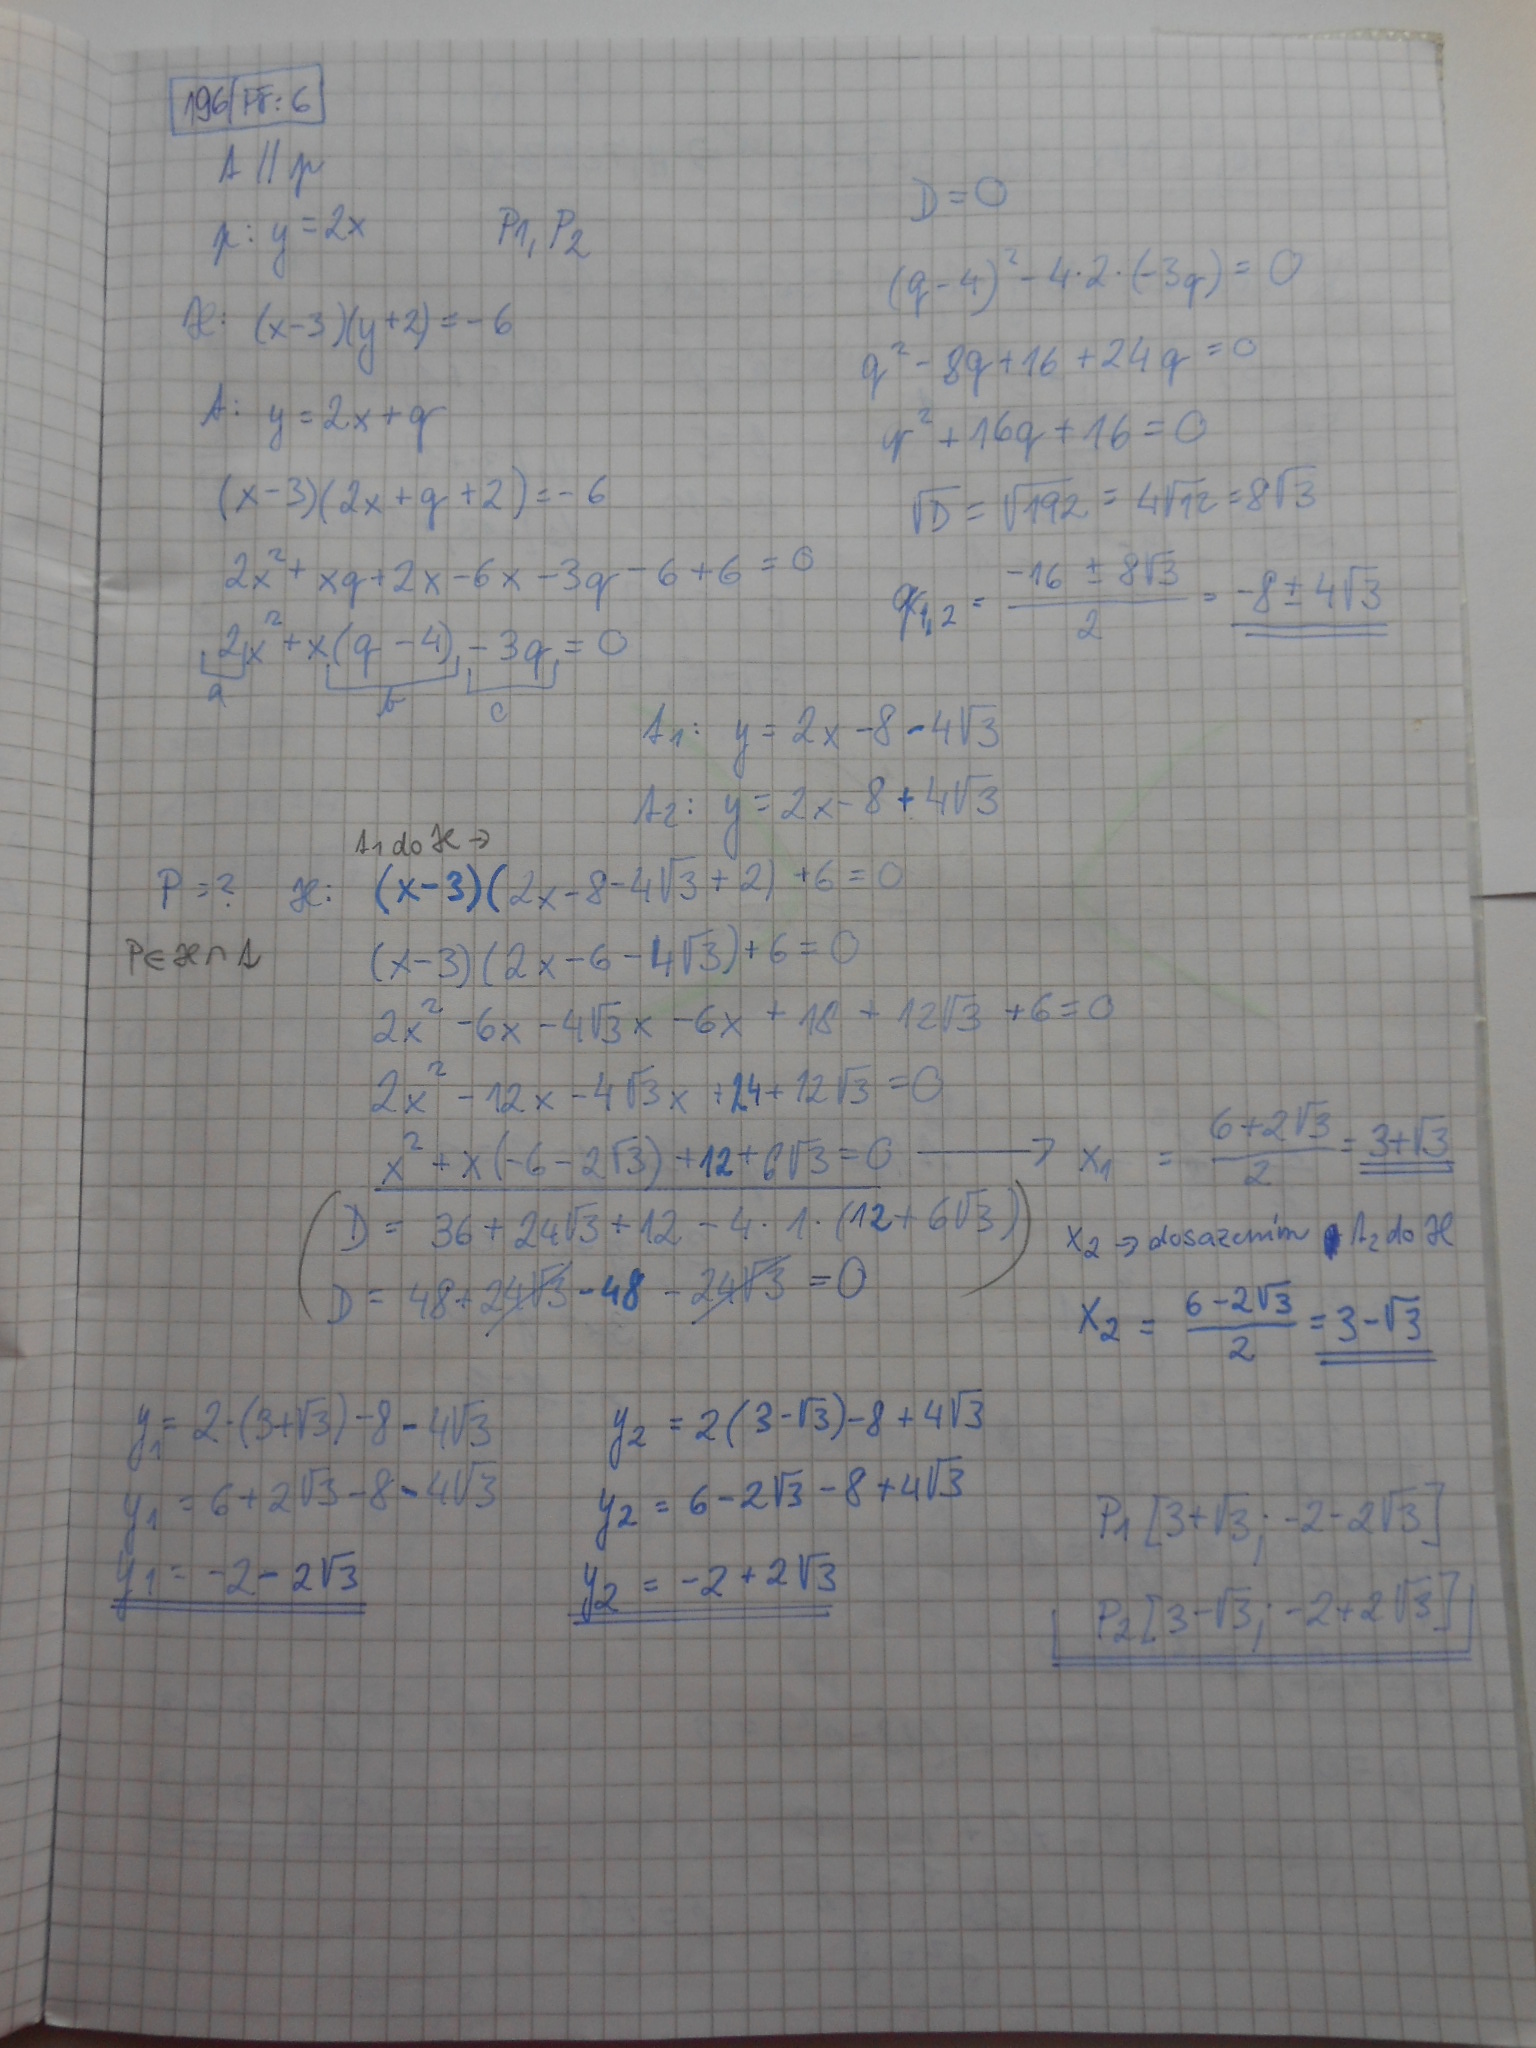 196/PŘ: 6
t // p
p: y = 2x P1, P2
H: (x-3)(y+2) = -6
t: y = 2x + q
(x-3)(2x+q+2) = -6
2x² + xq + 2x - 6x - 3q - 6 + 6 = 0
2x² + x(q-4) - 3q = 0
a b c
D = 0
(q-4)² - 4·2·(-3q) = 0
q² - 8q + 16 + 24q = 0
q² + 16q + 16 = 0
√D = √192 = 4√12 = 8√3
q1,2 = (-16 ± 8√3)/2 = -8 ± 4√3
t1: y = 2x - 8 - 4√3
t2: y = 2x - 8 + 4√3
t1 do H →
P = ? H: (x-3)(2x-8-4√3+2) + 6 = 0
P ∈ H ∩ t (x-3)(2x-6-4√3) + 6 = 0
2x² - 6x - 4√3x - 6x + 18 + 12√3 + 6 = 0
2x² - 12x - 4√3x + 24 + 12√3 = 0
x² + x(-6-2√3) + 12 + 6√3 = 0 → x1 = (6+2√3)/2 = 3+√3
(D = 36 + 24√3 + 12 - 4·1·(12+6√3)
D = 48 + 24√3 - 48 - 24√3 = 0)
x2 → dosazením t2 do H
x2 = (6-2√3)/2 = 3-√3
y1 = 2·(3+√3) - 8 - 4√3
y1 = 6 + 2√3 - 8 - 4√3
y1 = -2 - 2√3
y2 = 2(3-√3) - 8 + 4√3
y2 = 6 - 2√3 - 8 + 4√3
y2 = -2 + 2√3
P1 [3+√3; -2-2√3]
P2 [3-√3; -2+2√3]